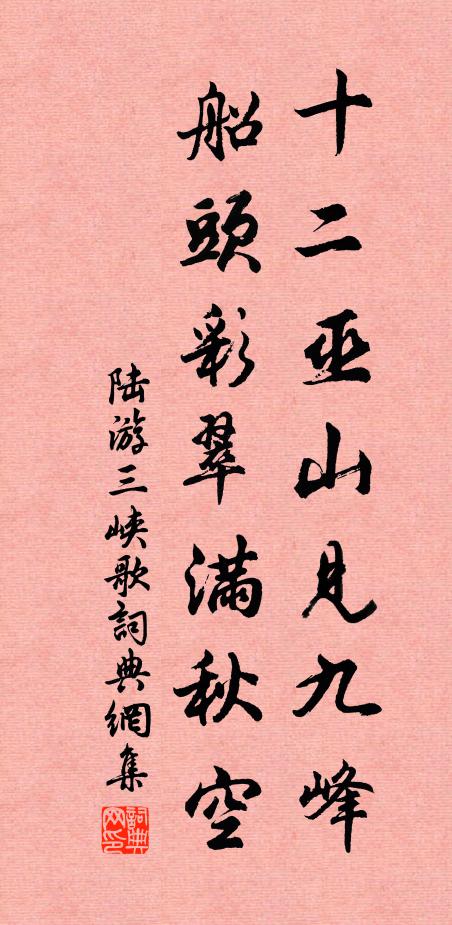 十二巫山見九峰
船頭彩翠滿秋空
陆游三峽歌詞典網集
詞典网印